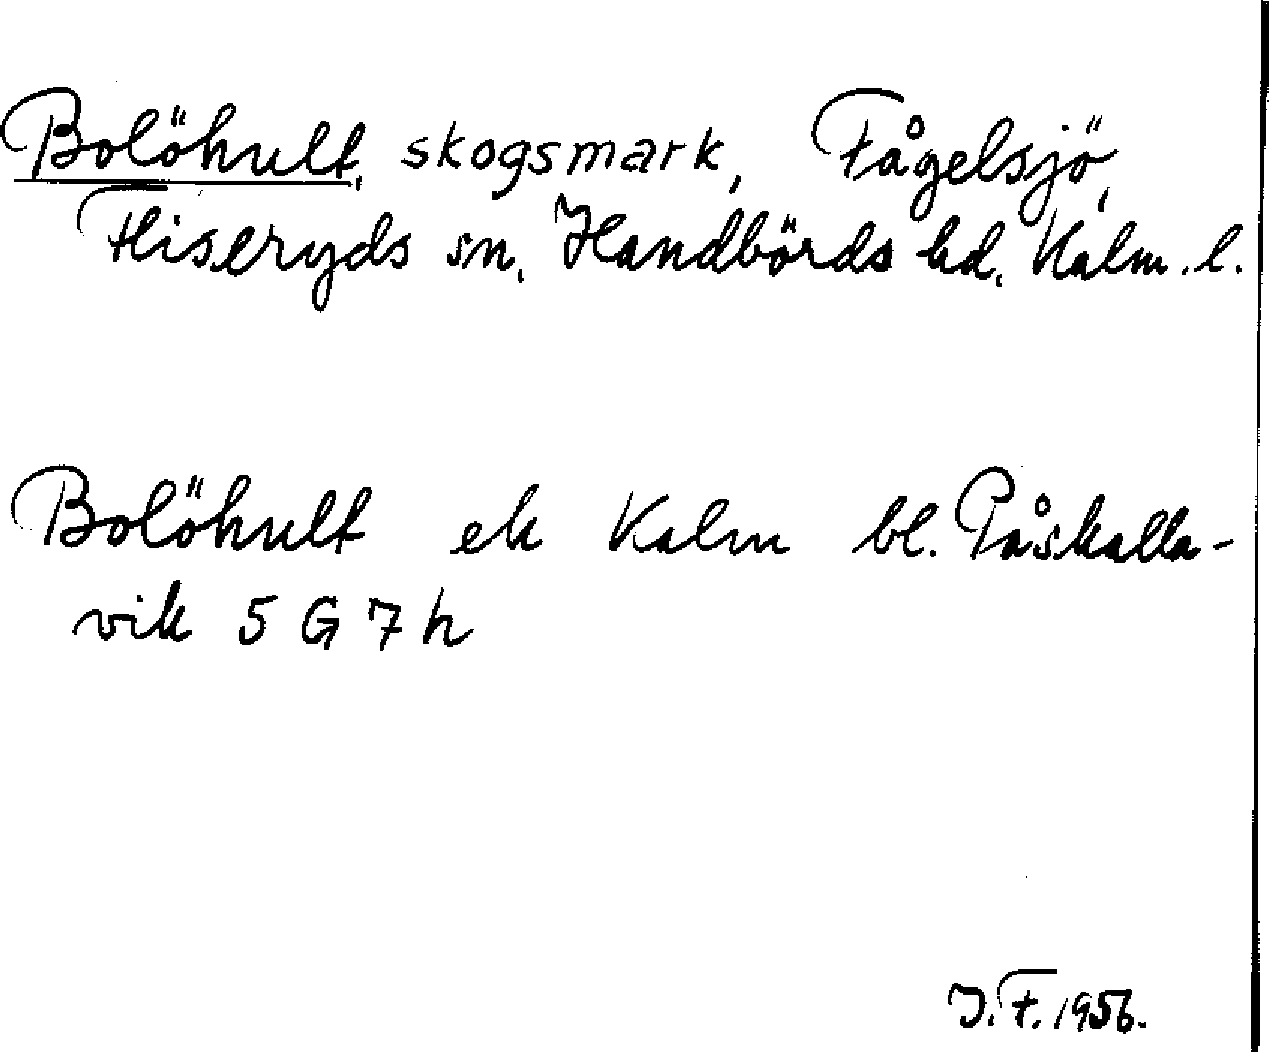 Bolöhult, skogsmark, Fågelsjö,
Fliseryds sn, Handbörds hd, Kalm. l.
Bolöhult ek Kalm bl. Påskalla-
vik 5 G 7 h
J. F. 1956.